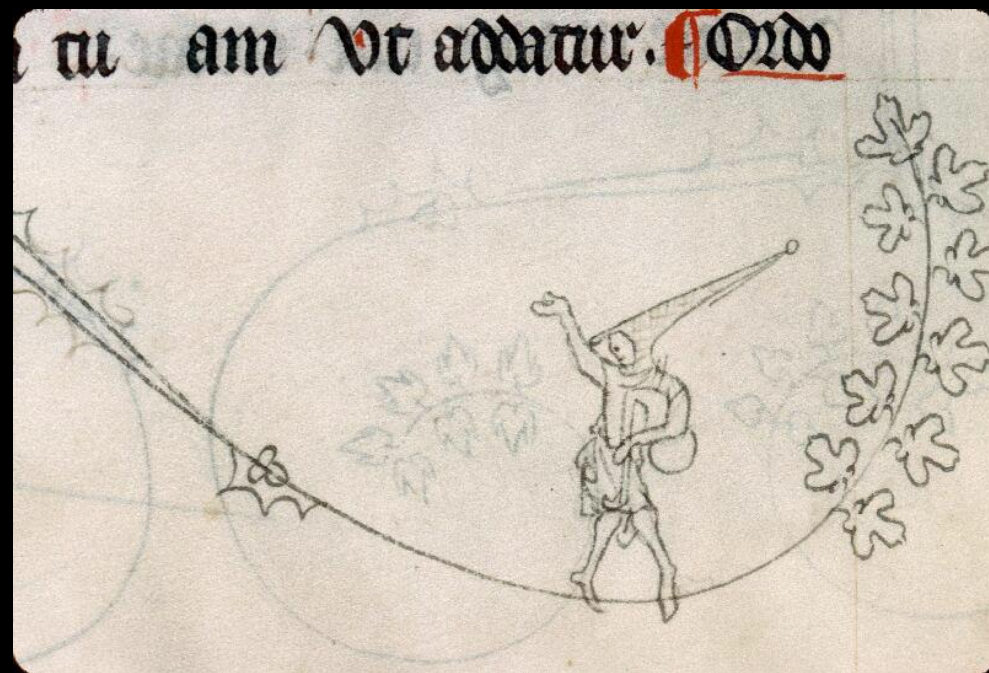 tu am Ut addatur. ¶ Ordo